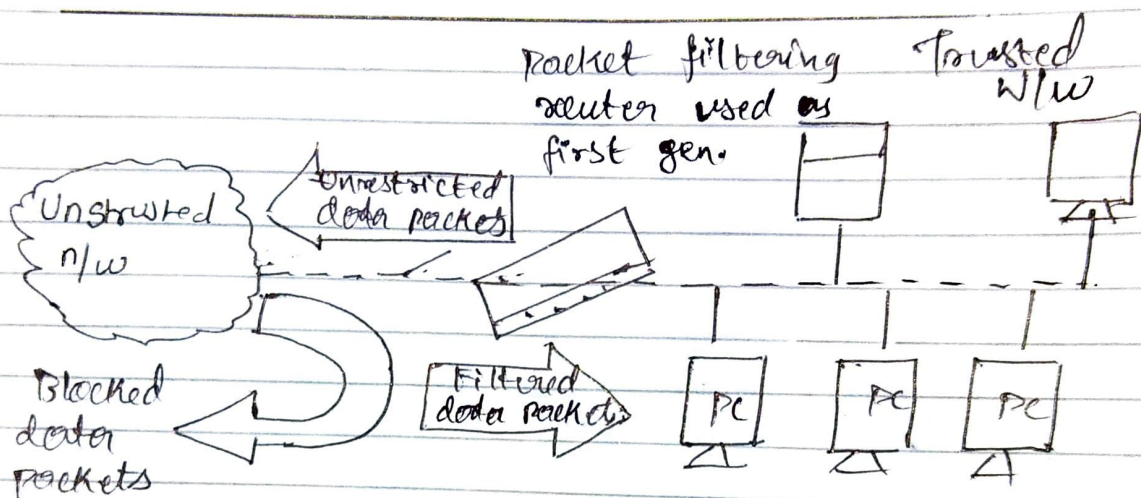 Packet filtering
router used as
first gen.
Trusted
N/w
Unrestricted
data packets
Unstrusted
n/w
Blocked
data
packets
Filtered
data packets
PC
PC
PC